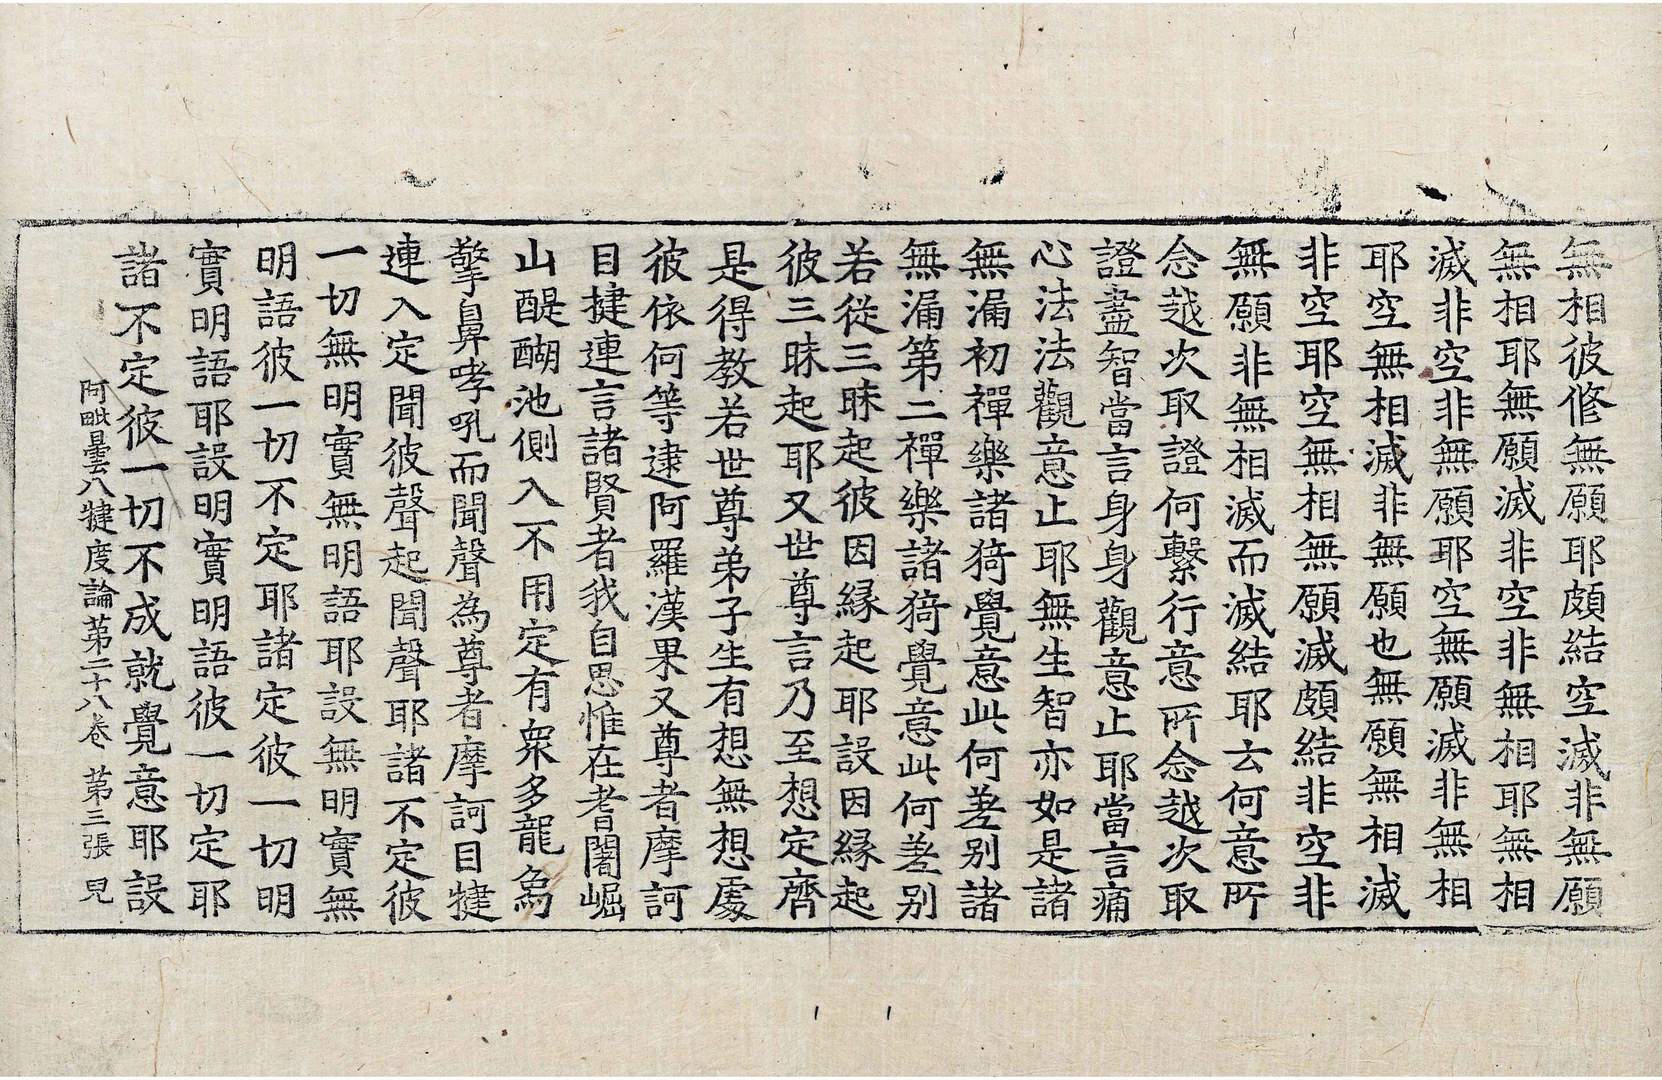 無相彼修無願耶頗結空滅非無願
無相耶無願滅非空非無相耶無相
滅非空非無願耶空無願滅非無相
耶空無相滅非無願也無願無相滅
非空耶空無相無願滅頗結非空非
無願非無相滅而滅結耶去何意所
念越次取證何繫行意所念越次取
證盡智當言身身觀意止耶當言痛
心法法觀意止耶無生智亦如是諸
無漏初禪樂諸猗覺意此何差别諸
無漏第二禪樂諸猗覺意此何差别
若從三昧起彼因緣起耶設因緣起
彼三昧起耶又世尊言乃至想定齊
是得教若世尊弟子生有想無想處
彼依何等逮阿羅漢果又尊者摩訶
目揵連言諸賢者我自思惟在耆闍崛
山醍醐池側入不用定有衆多龍鳥
擎鼻哮吼而聞聲為尊者摩訶目揵
連入定聞彼聲起聞聲耶諸不定彼
一切無明實無明語耶設無明實無
明語彼一切不定耶諸定彼一切明
實明語耶設明實明語彼一切定耶
諸不定彼一切不成就覺意耶設
阿毗曇八犍度論第二十八卷 第三張 皃